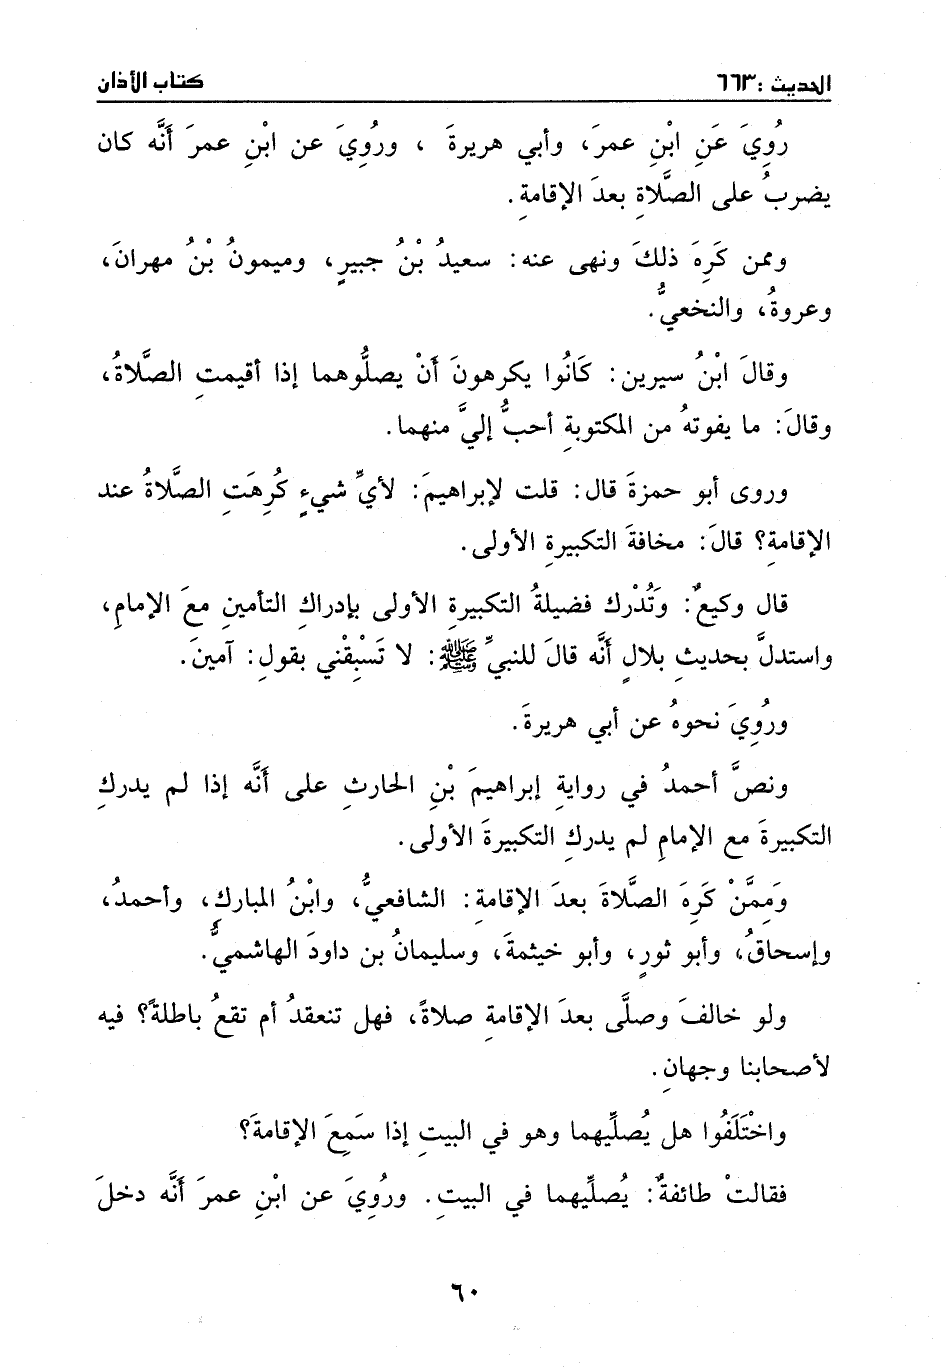 الحديث : ٦٦٣ كتاب الأذان
رُوِيَ عَنِ ابْنِ عمرَ، وأبي هريرةَ ، ورُوِيَ عن ابْنِ عمرَ أَنَّه كان
يضربُ على الصَّلاةِ بعدَ الإقامةِ.
وممن كَرِهَ ذلكَ ونهى عنه: سعيدُ بْنُ جبيرٍ، وميمونُ بْنُ مهرانَ،
وعروةُ، والنخعيُّ.
وقالَ ابْنُ سيرين: كَانُوا يكرهونَ أَنْ يصلُّوهما إذا أقيمتِ الصَّلاةُ،
وقالَ: ما يفوتهُ من المكتوبةِ أحبُّ إليَّ منهما.
وروى أبو حمزةَ قال: قلت لإبراهيمَ: لأيِّ شيءٍ كُرِهَتِ الصَّلاةُ عند
الإقامةِ؟ قالَ: مخافةَ التكبيرةِ الأولى.
قال وكيعٌ: وَتُدْرك فضيلةُ التكبيرةِ الأولى بإدراكِ التأمينِ معَ الإمامِ،
واستدلَّ بحديثِ بلالٍ أَنَّه قالَ للنبيِّ ﷺ: لا تَسْبِقْني بقولِ: آمينَ.
ورُوِيَ نحوهُ عن أبي هريرةَ.
ونصَّ أحمدُ في روايةِ إبراهيمَ بْنِ الحارثِ على أَنَّه إذا لم يدركِ
التكبيرةَ مع الإمامِ لم يدركِ التكبيرةَ الأولى.
وَمِمَّنْ كَرِهَ الصَّلاةَ بعدَ الإقامةِ: الشافعيُّ، وابْنُ المباركِ، وأحمدُ،
وإسحاقُ، وأبو ثورٍ، وأبو خيثمةَ، وسليمانُ بن داودَ الهاشميُّ.
ولو خالفَ وصلَّى بعدَ الإقامةِ صلاةً، فهل تنعقدُ أم تقعُ باطلةً؟ فيه
لأصحابنا وجهانِ.
واخْتَلَفُوا هل يُصلِّيهما وهو في البيتِ إذا سَمِعَ الإقامةَ؟
فقالتْ طائفةٌ: يُصلِّيهما في البيتِ. ورُوِيَ عن ابْنِ عمرَ أَنَّه دخلَ
٦٠